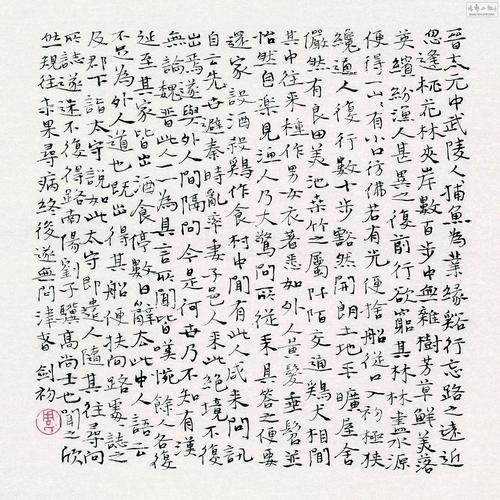 晋太元中武陵人捕魚為業緣谿行忘路之遠近
忽逢桃花林夾岸數百步中無雜樹芳草鮮美落
英繽紛漁人甚異之復前行欲窮其林林盡水源
便得一山山有小口彷彿若有光便捨船從口入初極狹
纔通人復行數十步豁然開朗土地平曠屋舍
儼然有良田美池桑竹之屬阡陌交通鷄犬相聞
其中往來種作男女衣著悉如外人黃髮垂髫並
怡然自樂見漁人乃大驚問所從來具答之便要
還家設酒殺鷄作食村中聞有此人咸來問訊
自言先世避秦時亂率妻子邑人來此絕境不復
出焉遂與外人間隔問今是何世乃不知有漢
無論魏晋此人一一為具言所聞皆嘆惋餘人各復
延至其家皆出酒食停數日辭去此中人語云
不足為外人道也既出得其船便扶向路處處誌之
及郡下詣太守說如此太守即遣人隨其往尋向
所誌遂迷不復得路南陽劉子驥高尚士也聞之欣
然規往未果尋病終後遂無問津者 劍初